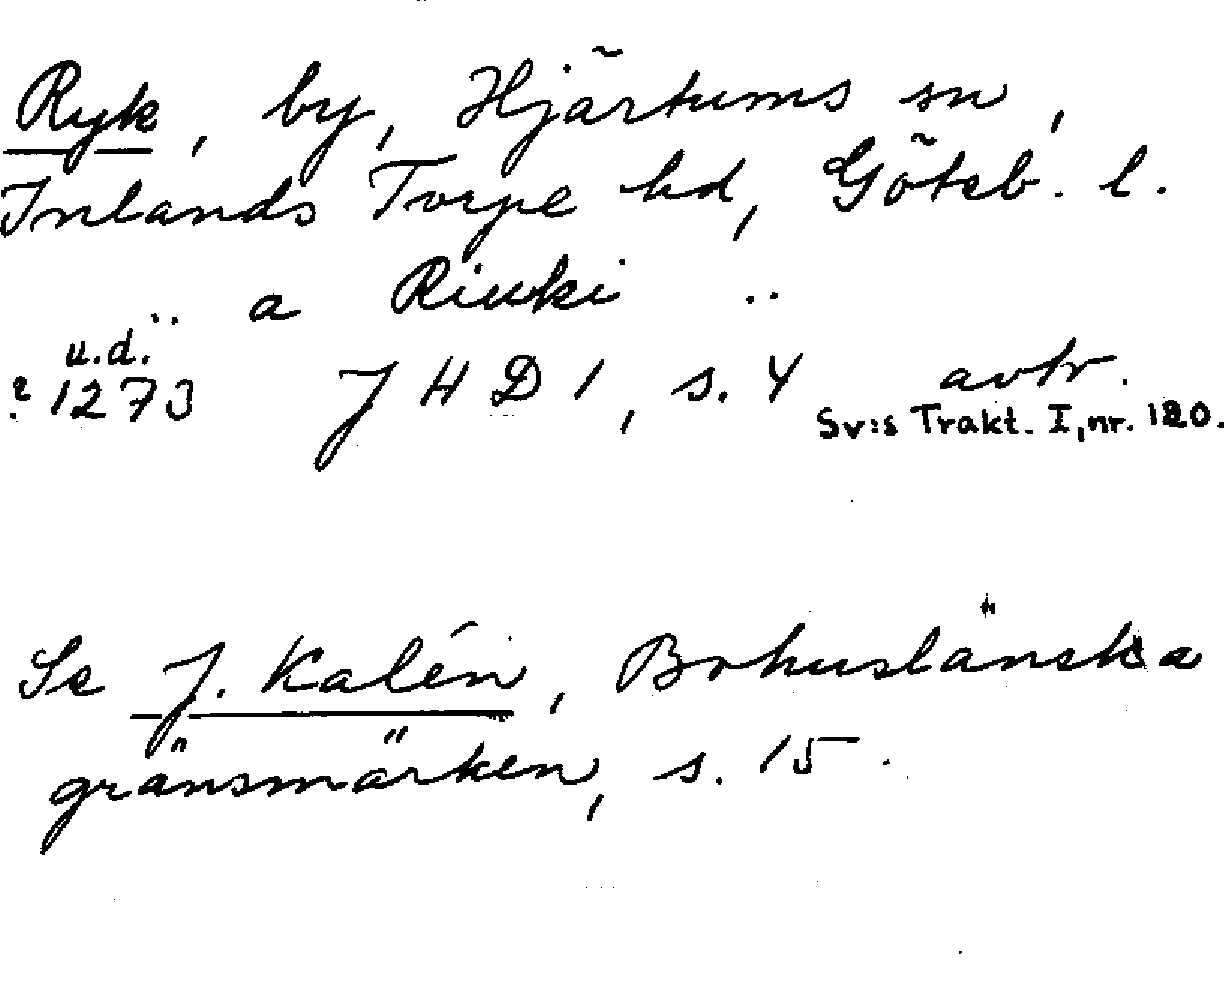 Ryk, by, Hjärtums sn,
Inlands Torpe hd, Göteb. l.
.. a Riuki ..
u.d.
? 1273 JHD 1, s. 4 avtr.
Sv:s Trakt. I, nr. 120.
Se J. Kalén, Bohuslänska
gränsmärken, s. 15.